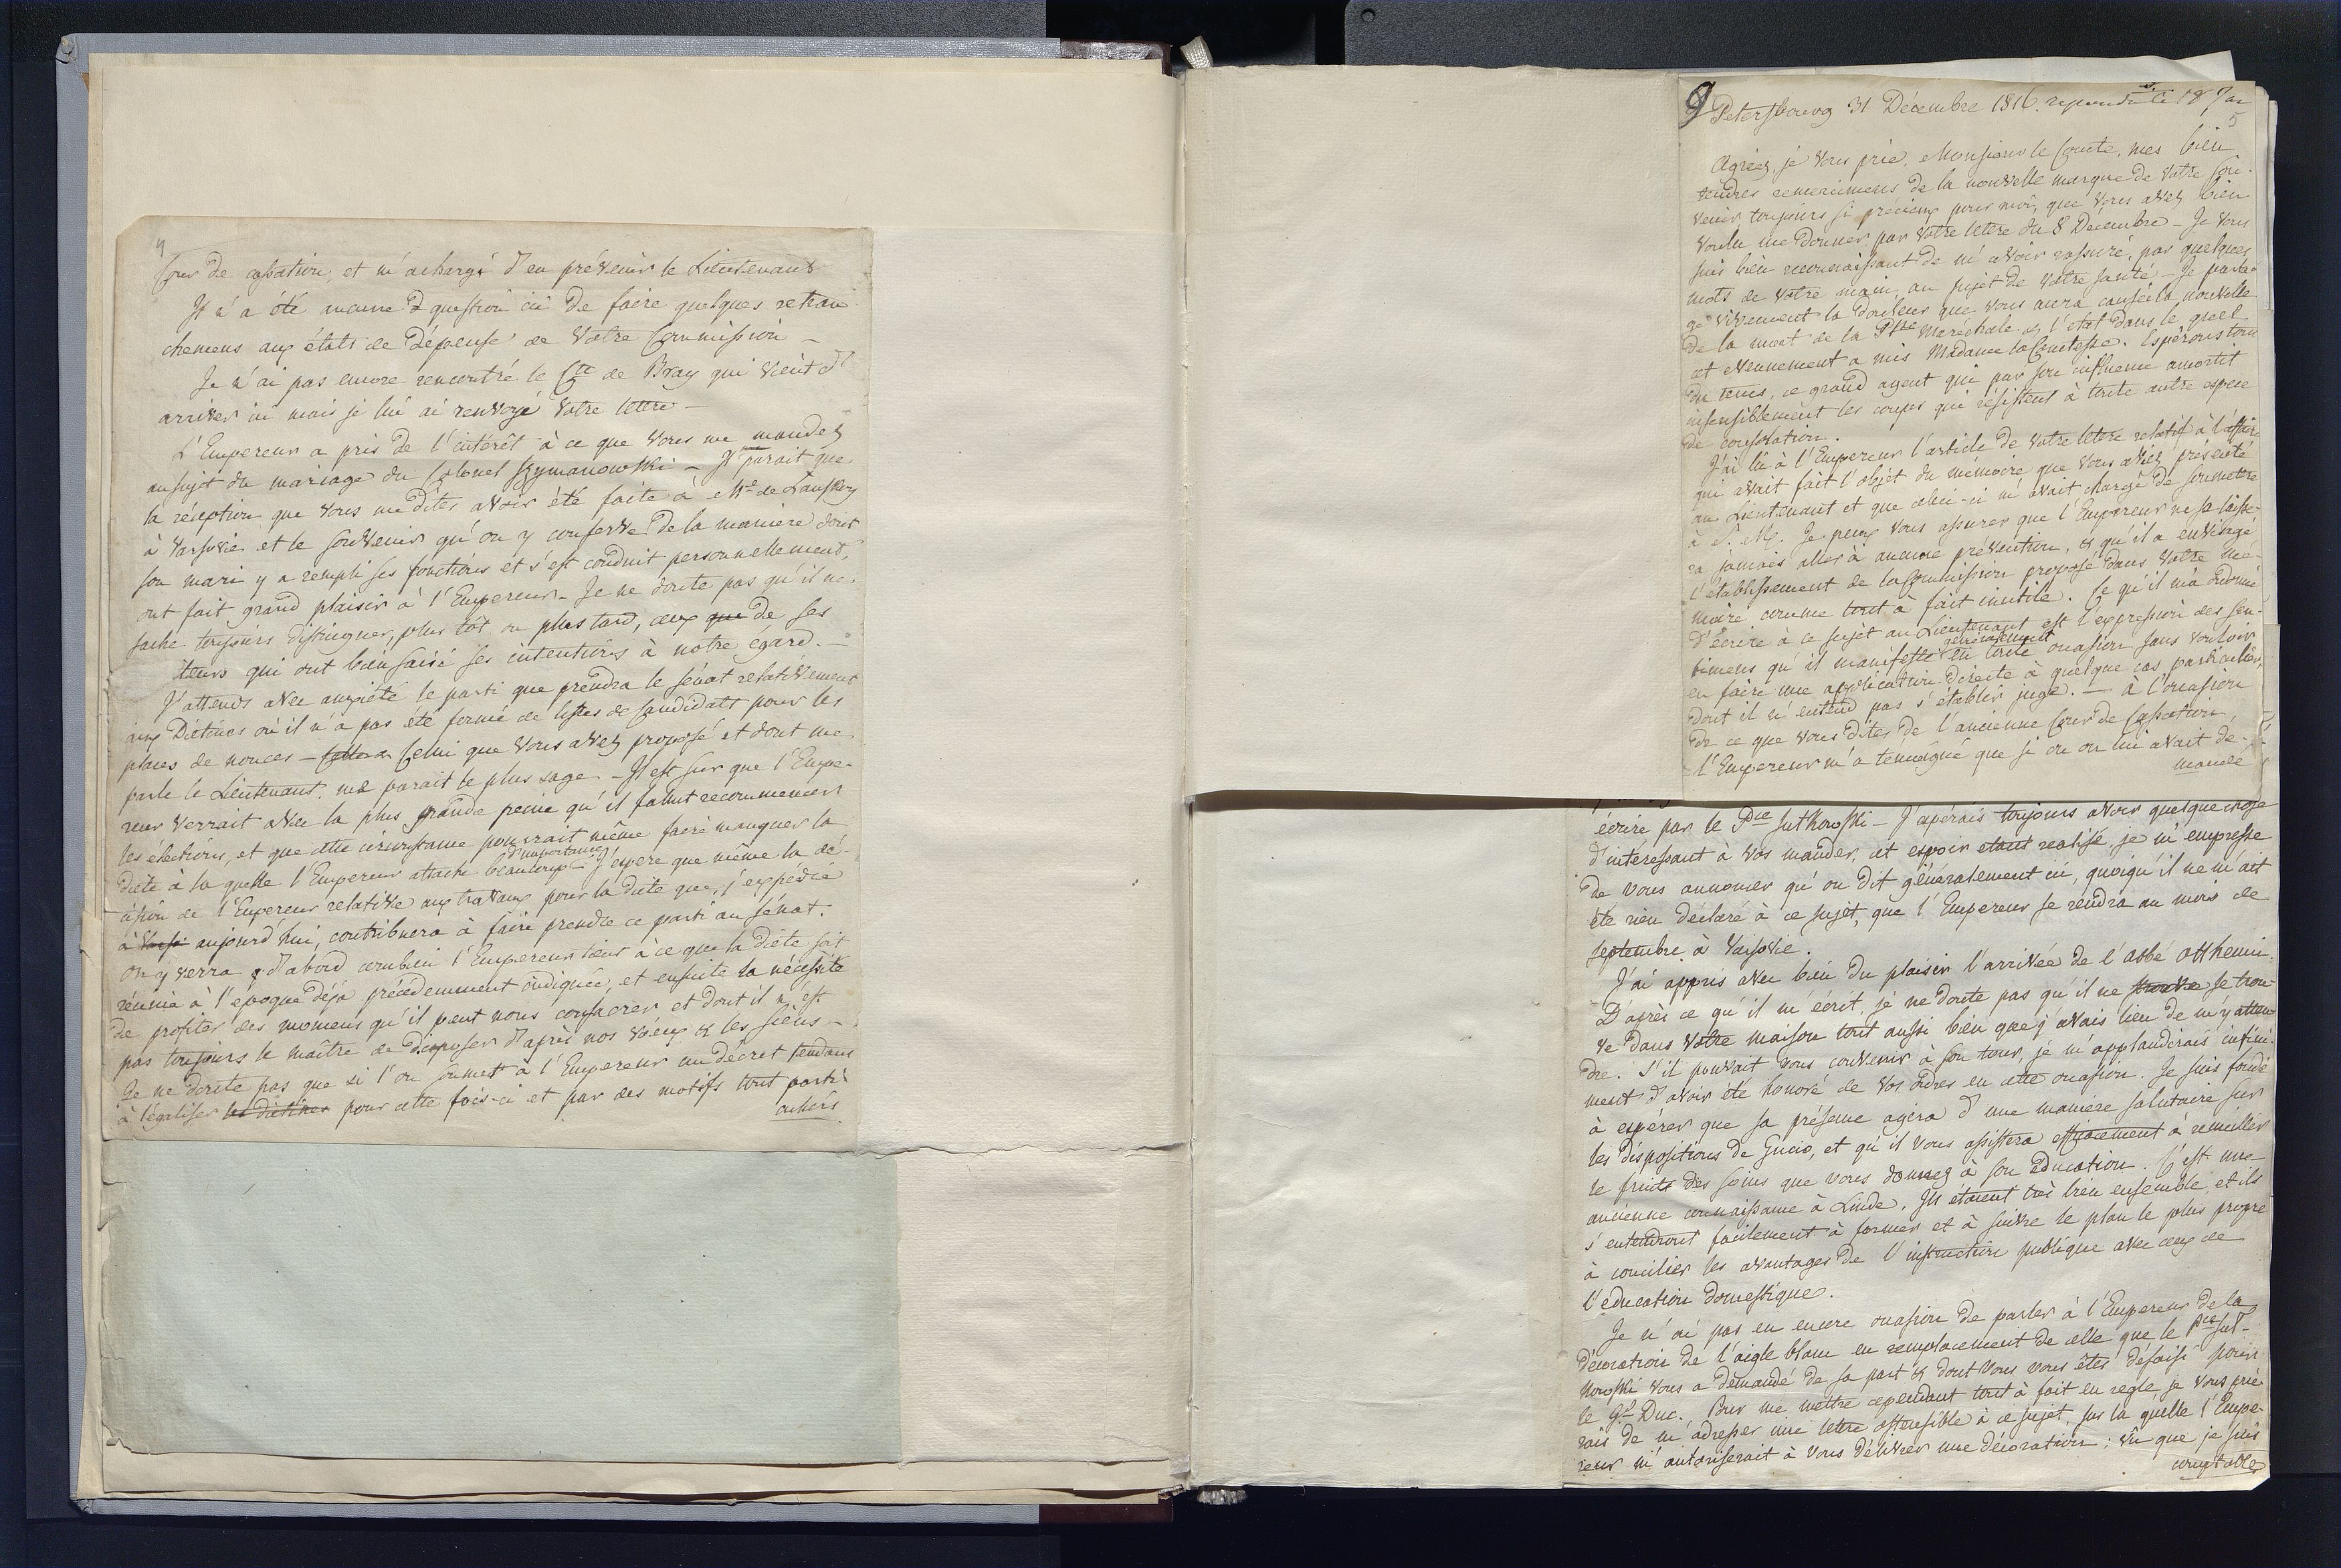 4
Cour de cassation, et m'a chargé d'en prévenir le Lieutenant
Il n'a été aucune question ici de faire quelques retran-
chemens aux états de dépense de Votre Commission –
Je n'ai pas encore rencontré le Cte de Bray qui vient d'
arriver ici mais je lui ai renvoyé Votre lettre –
L'Empereur a pris de l'intérêt à ce que Vous me mandez
au sujet du mariage du Colonel Szymanowski – Il parait que
la réception que Vous me dites avoir été faite à Me de Lanskoy
à Varsovie et le souvenir qu'on y conserve de la maniere dont
son mari y a rempli ses fonctions et s'est conduit personnellement,
ont fait grand plaisir à l'Empereur – Je ne doute pas qu'il ne
sache toujours distinguer, plus tôt ou plus tard, ceux que de ses
qui ont bien saisi ses intentions à notre egard. –
J'attends avec anxiété le parti que prendra le sénat relativement
aux Diétines où il n'a pas été formé de listes de Candidats pour les
places de nonces – Celui que Vous avez proposé et dont me
parle le Lieutenant me parait le plus sage – Il est sur que l'Empe-
reur verrait avec la plus grande peine qu'il fallut recommencer
les élections, et que cette circonstance pourrait même faire manquer la
diète à la quelle l'Empereur attache beaucoup d'importance – J'espere que même la dé-
cision de l'Empereur relative aux travaux pour la Diète que j'expédie
à aujourd'hui, contribuera à faire prendre ce parti au sénat.
On y verra d'abord combien l'Empereur tient à ce que la diète soit
réunie à l'époque déjà précédemment indiquée, et ensuite la nécessité
de profiter des momens qu'il peut nous consacrer et dont il n'est
pas toujours le maître de disposer d'après nos vœux & les siens –
Je ne doute pas que si l'on soumet à l'Empereur un décret tendant
à légaliser les diétines pour cette fois-ci et par des motifs tout parti-
culiers
9
Petersbourg 31 Décembre 1816. repondu le 18 Jan
5
Agréez, je Vous prie, Monsieur le Comte, mes bien
tendres remercimens de la nouvelle marque de Votre sou-
venir toujours si précieux pour moi, que Vous avez bien
voulu me donner par Votre lettre du 8 Décembre – Je Vous
suis bien reconnaissant de m'avoir rassuré, par quelques
mots de Votre main, au sujet de Votre santé – Je parta-
ge vivement la douleur que Vous aura causée la nouvelle
de la mort de la Psse Maréchale & l'état dans le quel
cet evenement a mis Madame la Comtesse. Espérons tout
du tems, ce grand agent qui par son influence amortit
insensiblement les coups qui résistent à toute autre espece
de consolation.
J'ai lû à l'Empereur l'article de Votre lettre relatif à l'affaire
qui avait fait l'objet du mémoire que Vous aviez présenté
au Lieutenant et que celui-ci m'avait chargé de soumettre
à S. M. Je peux Vous assurer que l'Empereur ne se laisse-
ra jamais aller à aucune prévention, & qu'il a envisagé
l'établissement de la Commission proposé dans Votre mé-
moire comme tout à fait inutile. Ce qu'il m'a ordonné
d'écrire à ce sujet au Lieutenant est l'expression des sen-
timens qu'il manifeste généralement en toute occasion sans vouloir
en faire une application directe à quelque cas particulier,
dont il n'entend pas s'établir juge. – à l'occasion
de ce que Vous dites de l'ancienne Cour de Cassation,
l'Empereur m'a temoigné que si on lui avait de-
mandé
écrire par le Pce Sulkowski – J'espérais toujours avoir quelque chose
d'intéressant à Vos mander, cet espoir etant realisé, je m'empresse
de Vous annoncer qu'on dit généralement ici, quoiqu'il ne m'ait
été rien déclaré à ce sujet, que l'Empereur se rendra au mois de
septembre à Varsovie.
J'ai appris avec bien du plaisir l'arrivée de l'abbé Otthenin.
D'après ce qu'il m'écrit, je ne doute pas qu'il ne trouve se trou-
ve dans Votre maison tout aussi bien que j'avais lieu de m'y atten-
dre. S'il pouvait Vous convenir à son tour, je m'applaudirais infini-
ment d'avoir été honoré de Vos ordres en cette occasion. Je suis fondé
à espérer que sa présence agira d'une manière salutaire sur
les dispositions de Gucio, et qu'il Vous assistera efficacement à recueillir
le fruit des soins que vous donnez à son éducation. C'est une
ancienne connaissance à Linde. Ils étaient très bien ensemble, et ils
s'entendront facilement à former et à suivre le plan le plus propre
à concilier les avantages de l'instruction publique avec ceux de
l'education domestique.
Je n'ai pas eu encore occasion de parler à l'Empereur de la
décoration de l'aigle blanc en remplacement de celle que le Pce Sul-
kowski Vous a demandé de sa part & dont Vous vous êtes désaisi pour
le Gd Duc. Pour me mettre cependant tout à fait en regle, je Vous prie-
rais de m'adresser une lettre ostensible à ce sujet, sur la quelle l'Empe-
reur m'autoriserait à Vous délivrer une décoration; vu que je suis
comptable